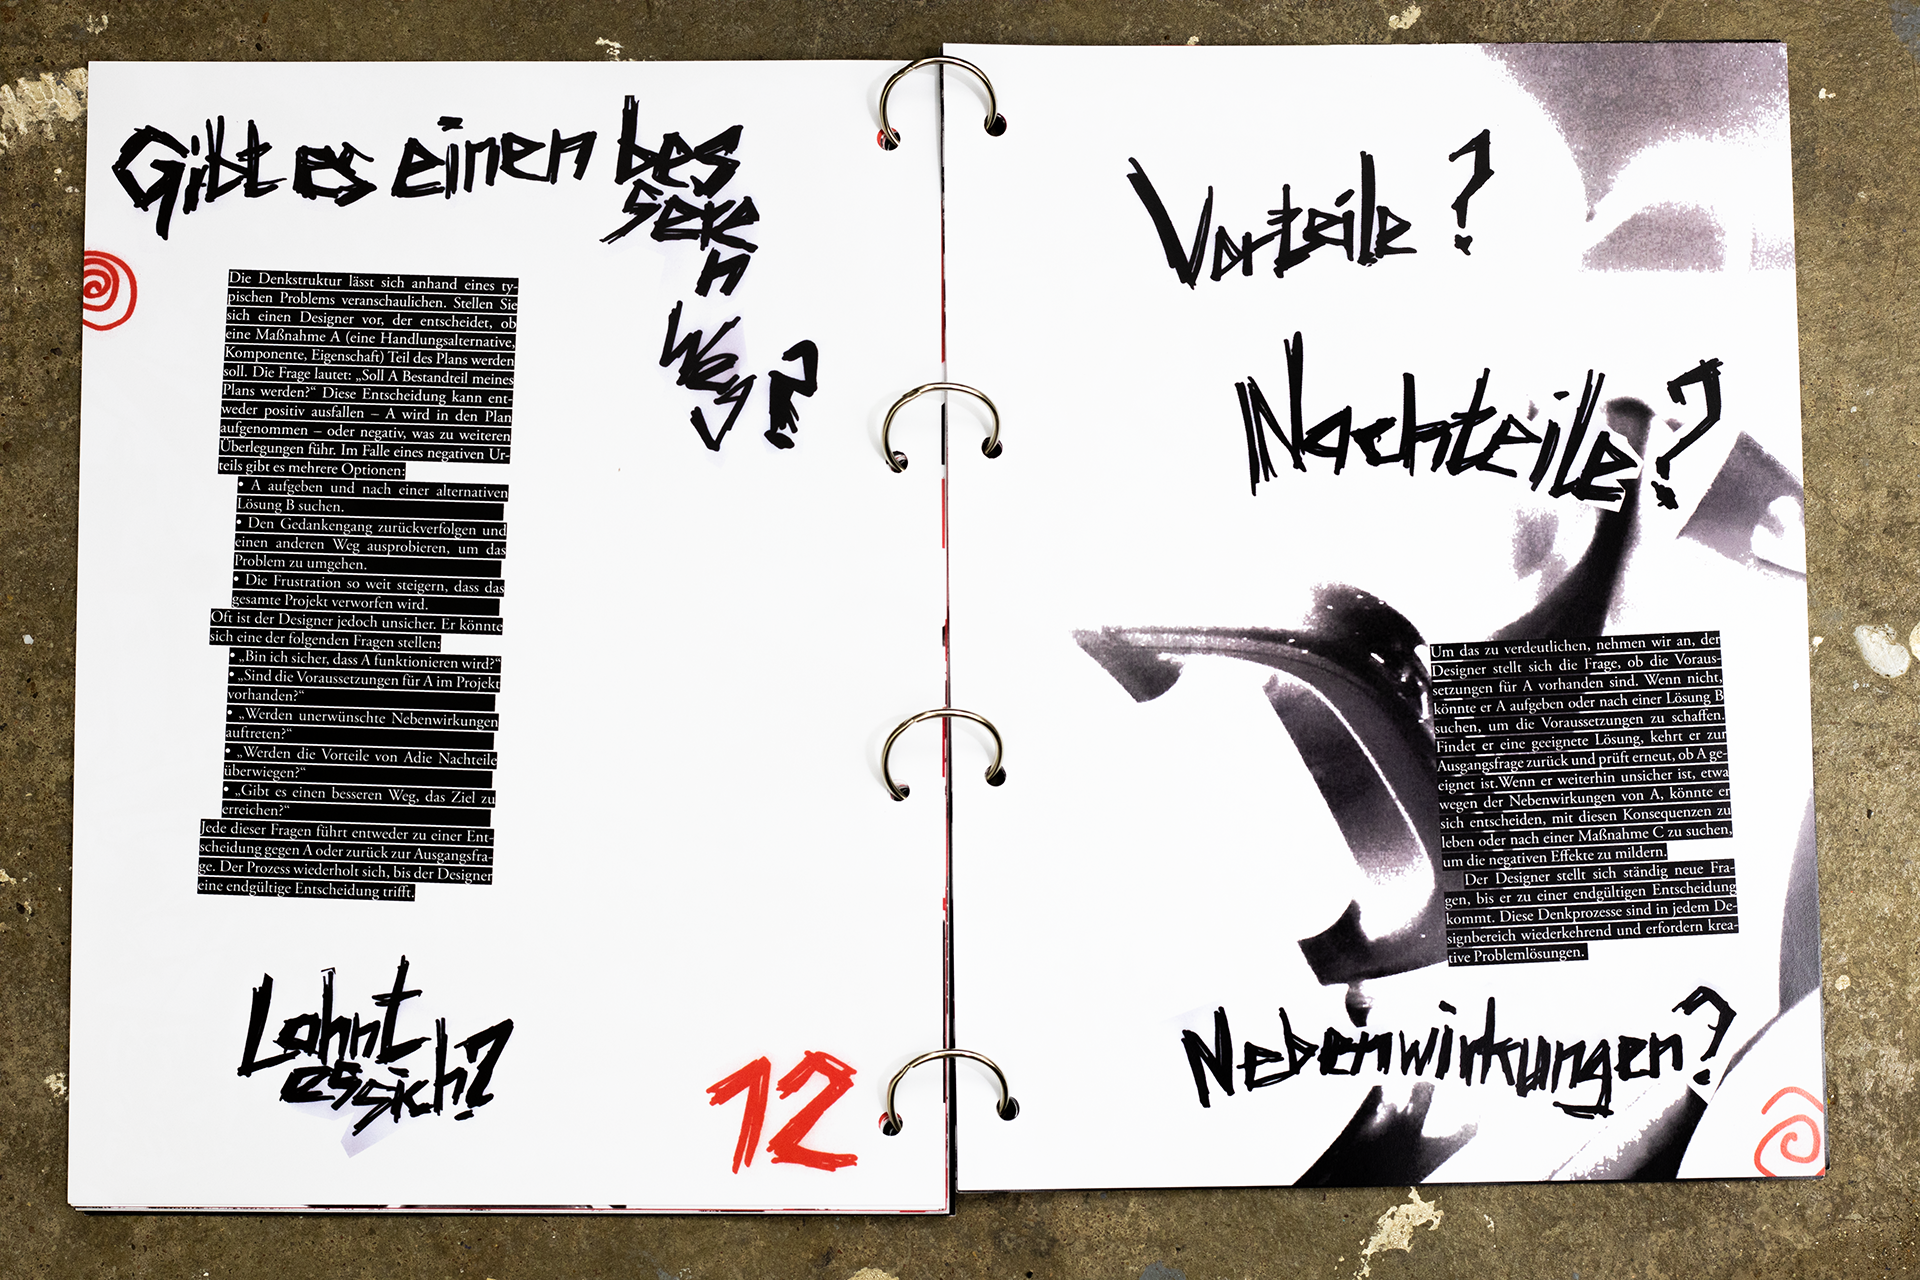 Gibt es einen bes
seren
n
Weg?
Die Denkstruktur lässt sich anhand eines ty-
pischen Problems veranschaulichen. Stellen Sie
sich einen Designer vor, der entscheidet, ob
eine Maßnahme A (eine Handlungsalternative,
Komponente, Eigenschaft) Teil des Plans werden
soll. Die Frage lautet: „Soll A Bestandteil meines
Plans werden?“ Diese Entscheidung kann ent-
weder positiv ausfallen – A wird in den Plan
aufgenommen – oder negativ, was zu weiteren
Überlegungen führ. Im Falle eines negativen Ur-
teils gibt es mehrere Optionen:
• A aufgeben und nach einer alternativen
Lösung B suchen.
• Den Gedankengang zurückverfolgen und
einen anderen Weg ausprobieren, um das
Problem zu umgehen.
• Die Frustration so weit steigern, dass das
gesamte Projekt verworfen wird.
Oft ist der Designer jedoch unsicher. Er könnte
sich eine der folgenden Fragen stellen:
• „Bin ich sicher, dass A funktionieren wird?“
• „Sind die Voraussetzungen für A im Projekt
vorhanden?“
• „Werden unerwünschte Nebenwirkungen
auftreten?“
• „Werden die Vorteile von Adie Nachteile
überwiegen?“
• „Gibt es einen besseren Weg, das Ziel zu
erreichen?“
Jede dieser Fragen führt entweder zu einer Ent-
scheidung gegen A oder zurück zur Ausgangsfra-
ge. Der Prozess wiederholt sich, bis der Designer
eine endgültige Entscheidung trifft.
Lohnt
es sich?
12
Vorteile?
Nachteile?
Um das zu verdeutlichen, nehmen wir an, der
Designer stellt sich die Frage, ob die Voraus-
setzungen für A vorhanden sind. Wenn nicht,
könnte er A aufgeben oder nach einer Lösung B
suchen, um die Voraussetzungen zu schaffen.
Findet er eine geeignete Lösung, kehrt er zur
Ausgangsfrage zurück und prüft erneut, ob A ge-
eignet ist.Wenn er weiterhin unsicher ist, etwa
wegen der Nebenwirkungen von A, könnte er
sich entscheiden, mit diesen Konsequenzen zu
leben oder nach einer Maßnahme C zu suchen,
um die negativen Effekte zu mildern.
Der Designer stellt sich ständig neue Fra-
gen, bis er zu einer endgültigen Entscheidung
kommt. Diese Denkprozesse sind in jedem De-
signbereich wiederkehrend und erfordern krea-
tive Problemlösungen.
Nebenwirkungen?